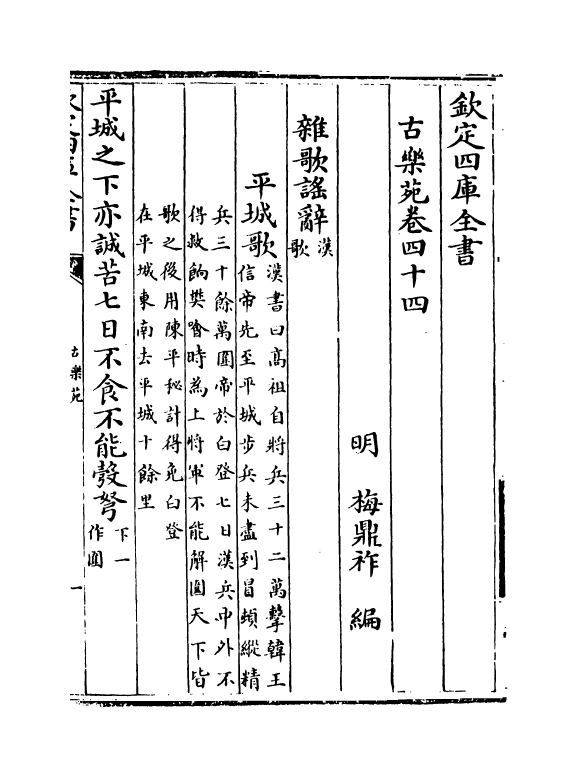 欽定四庫全書
古樂苑卷四十四
明 梅鼎祚 編
雜歌謠辭 漢
歌
平城歌 漢書曰高祖自將兵三十二萬擊韓王
信帝先至平城步兵未盡到冒頓縱精
兵三十餘萬圍帝於白登七日漢兵中外不
得救餉樊噲時為上將軍不能解圍天下皆
歌之後用陳平秘計得免白登
在平城東南去平城十餘里
平城之下亦誠苦七日不食不能彀弩 下一
作圍
欽定四庫全書
古樂苑
一